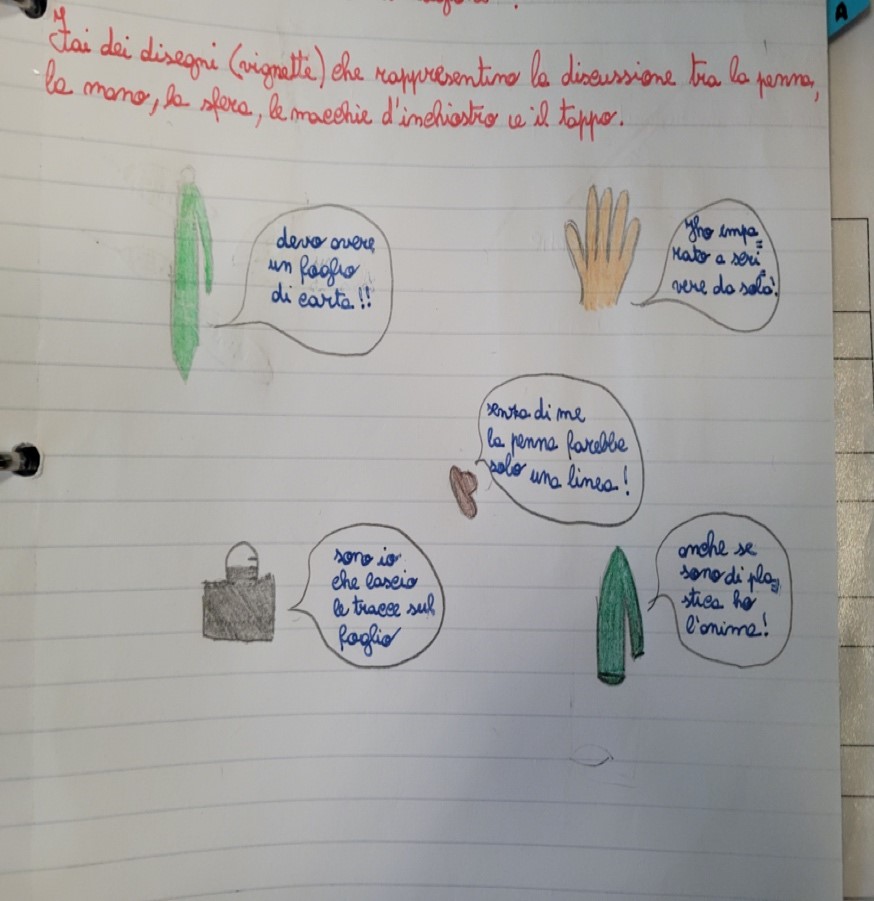 Fai dei disegni (vignette) che rappresentino la discussione tra la penna,
la mano, la sfera, le macchie d'inchiostro e il tappo.
devo avere
un foglio
di carta!!
Ho impa=
rato a scri=
vere da sola!
senza di me
la penna farebbe
solo una linea!
sono io
che lascio
le tracce sul
foglio
anche se
sono di pla=
stica ho
l'anima!
A